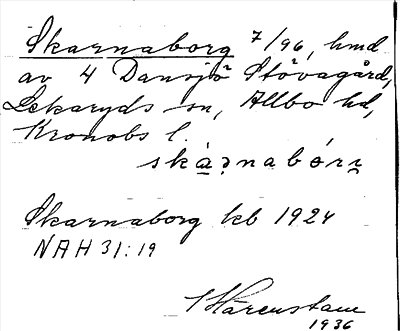 Skarnaborg 7/96, hmd
av 4 Dansjö Stövagård,
Lekaryds sn, Allbo hd,
Kronobs l.
skánabórj
Skarnaborg kb 1924
NAH 31:19
Härenstam
1936